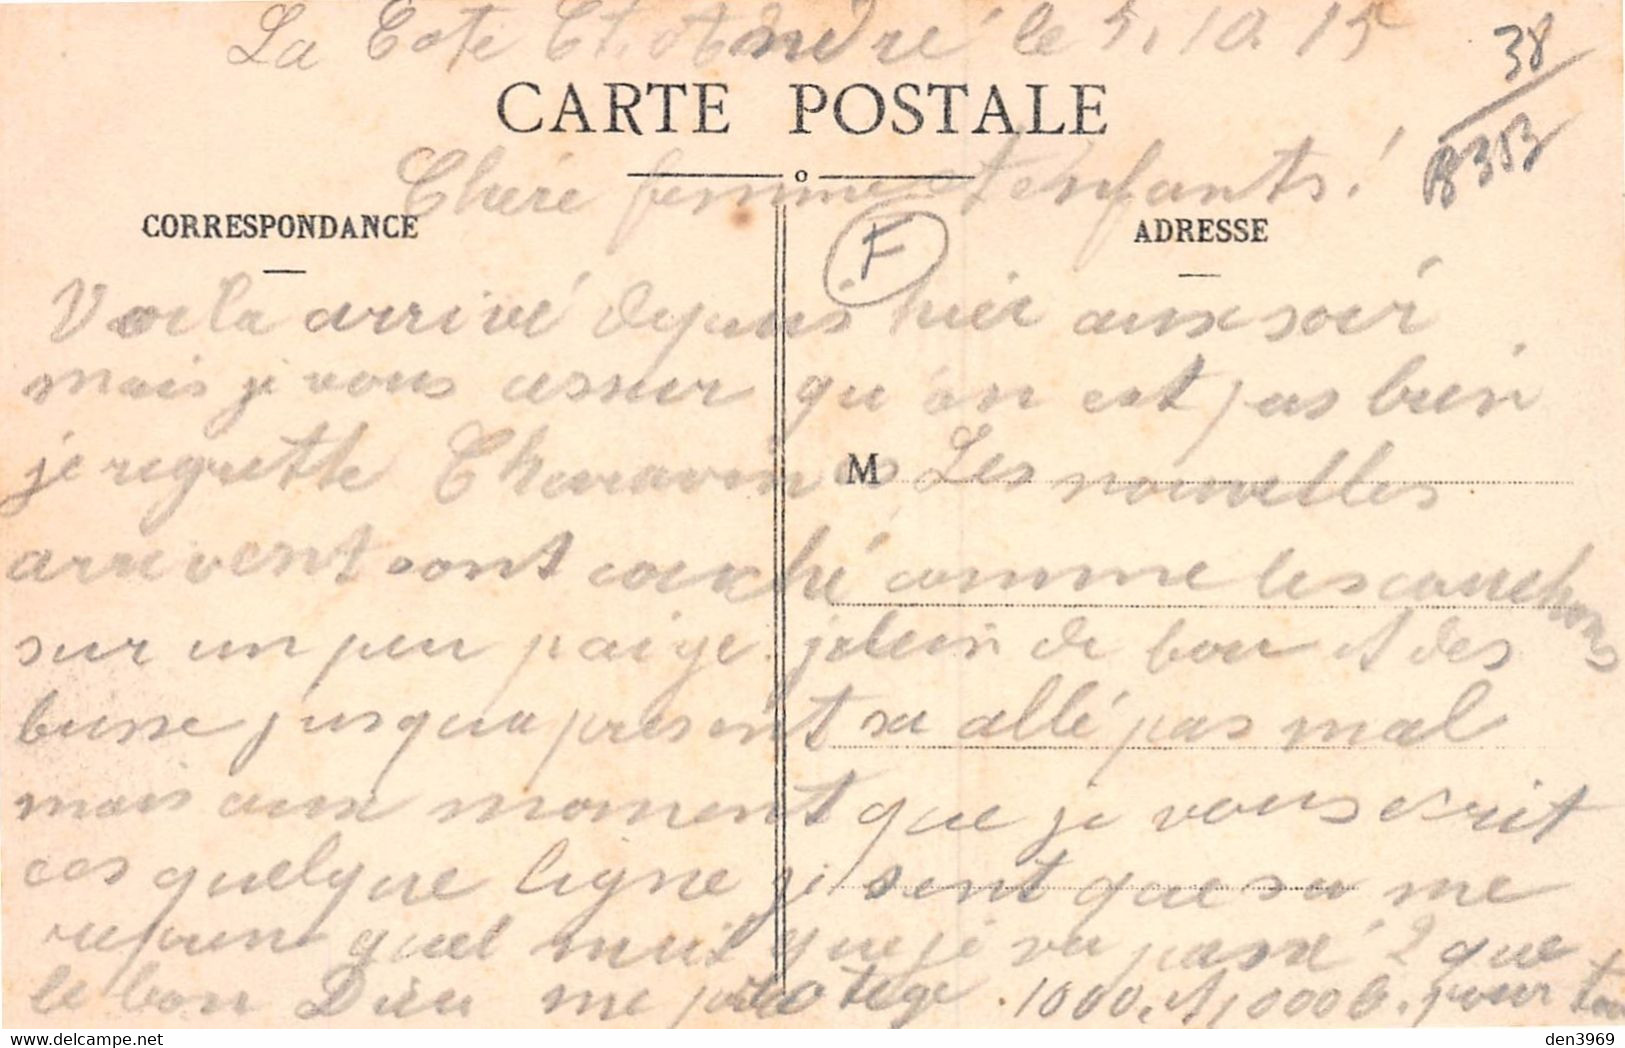 La Cote St. André le 5. 10. 15
38
B353
CARTE POSTALE
Chére femme et enfants!
CORRESPONDANCE
ADRESSE
F
Voila arrivé depuis hier aux soir
mais je vous assur qu'on est pas bien
je regrette Charavines Les nouvelles
M
arrivent sont couché comme les couchons
sur un peu paige plein de bou et des
busse jusqua present sa allé pas mal
mais aux moment que je vous ecrit
ces quelque ligne je sent que sa me
quel nuit que je va passé ? que
le bon Dieu me protege. 1000. et 1,000 b. pour tou
den3969